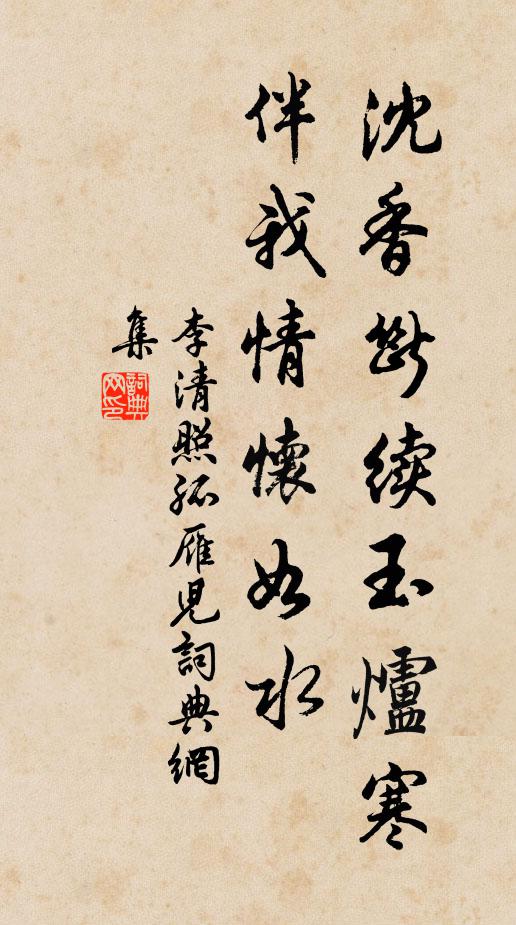 沈香斷续玉爐寒
伴我情懷如水
李清照孤雁児詞典網
集
詞典
网印